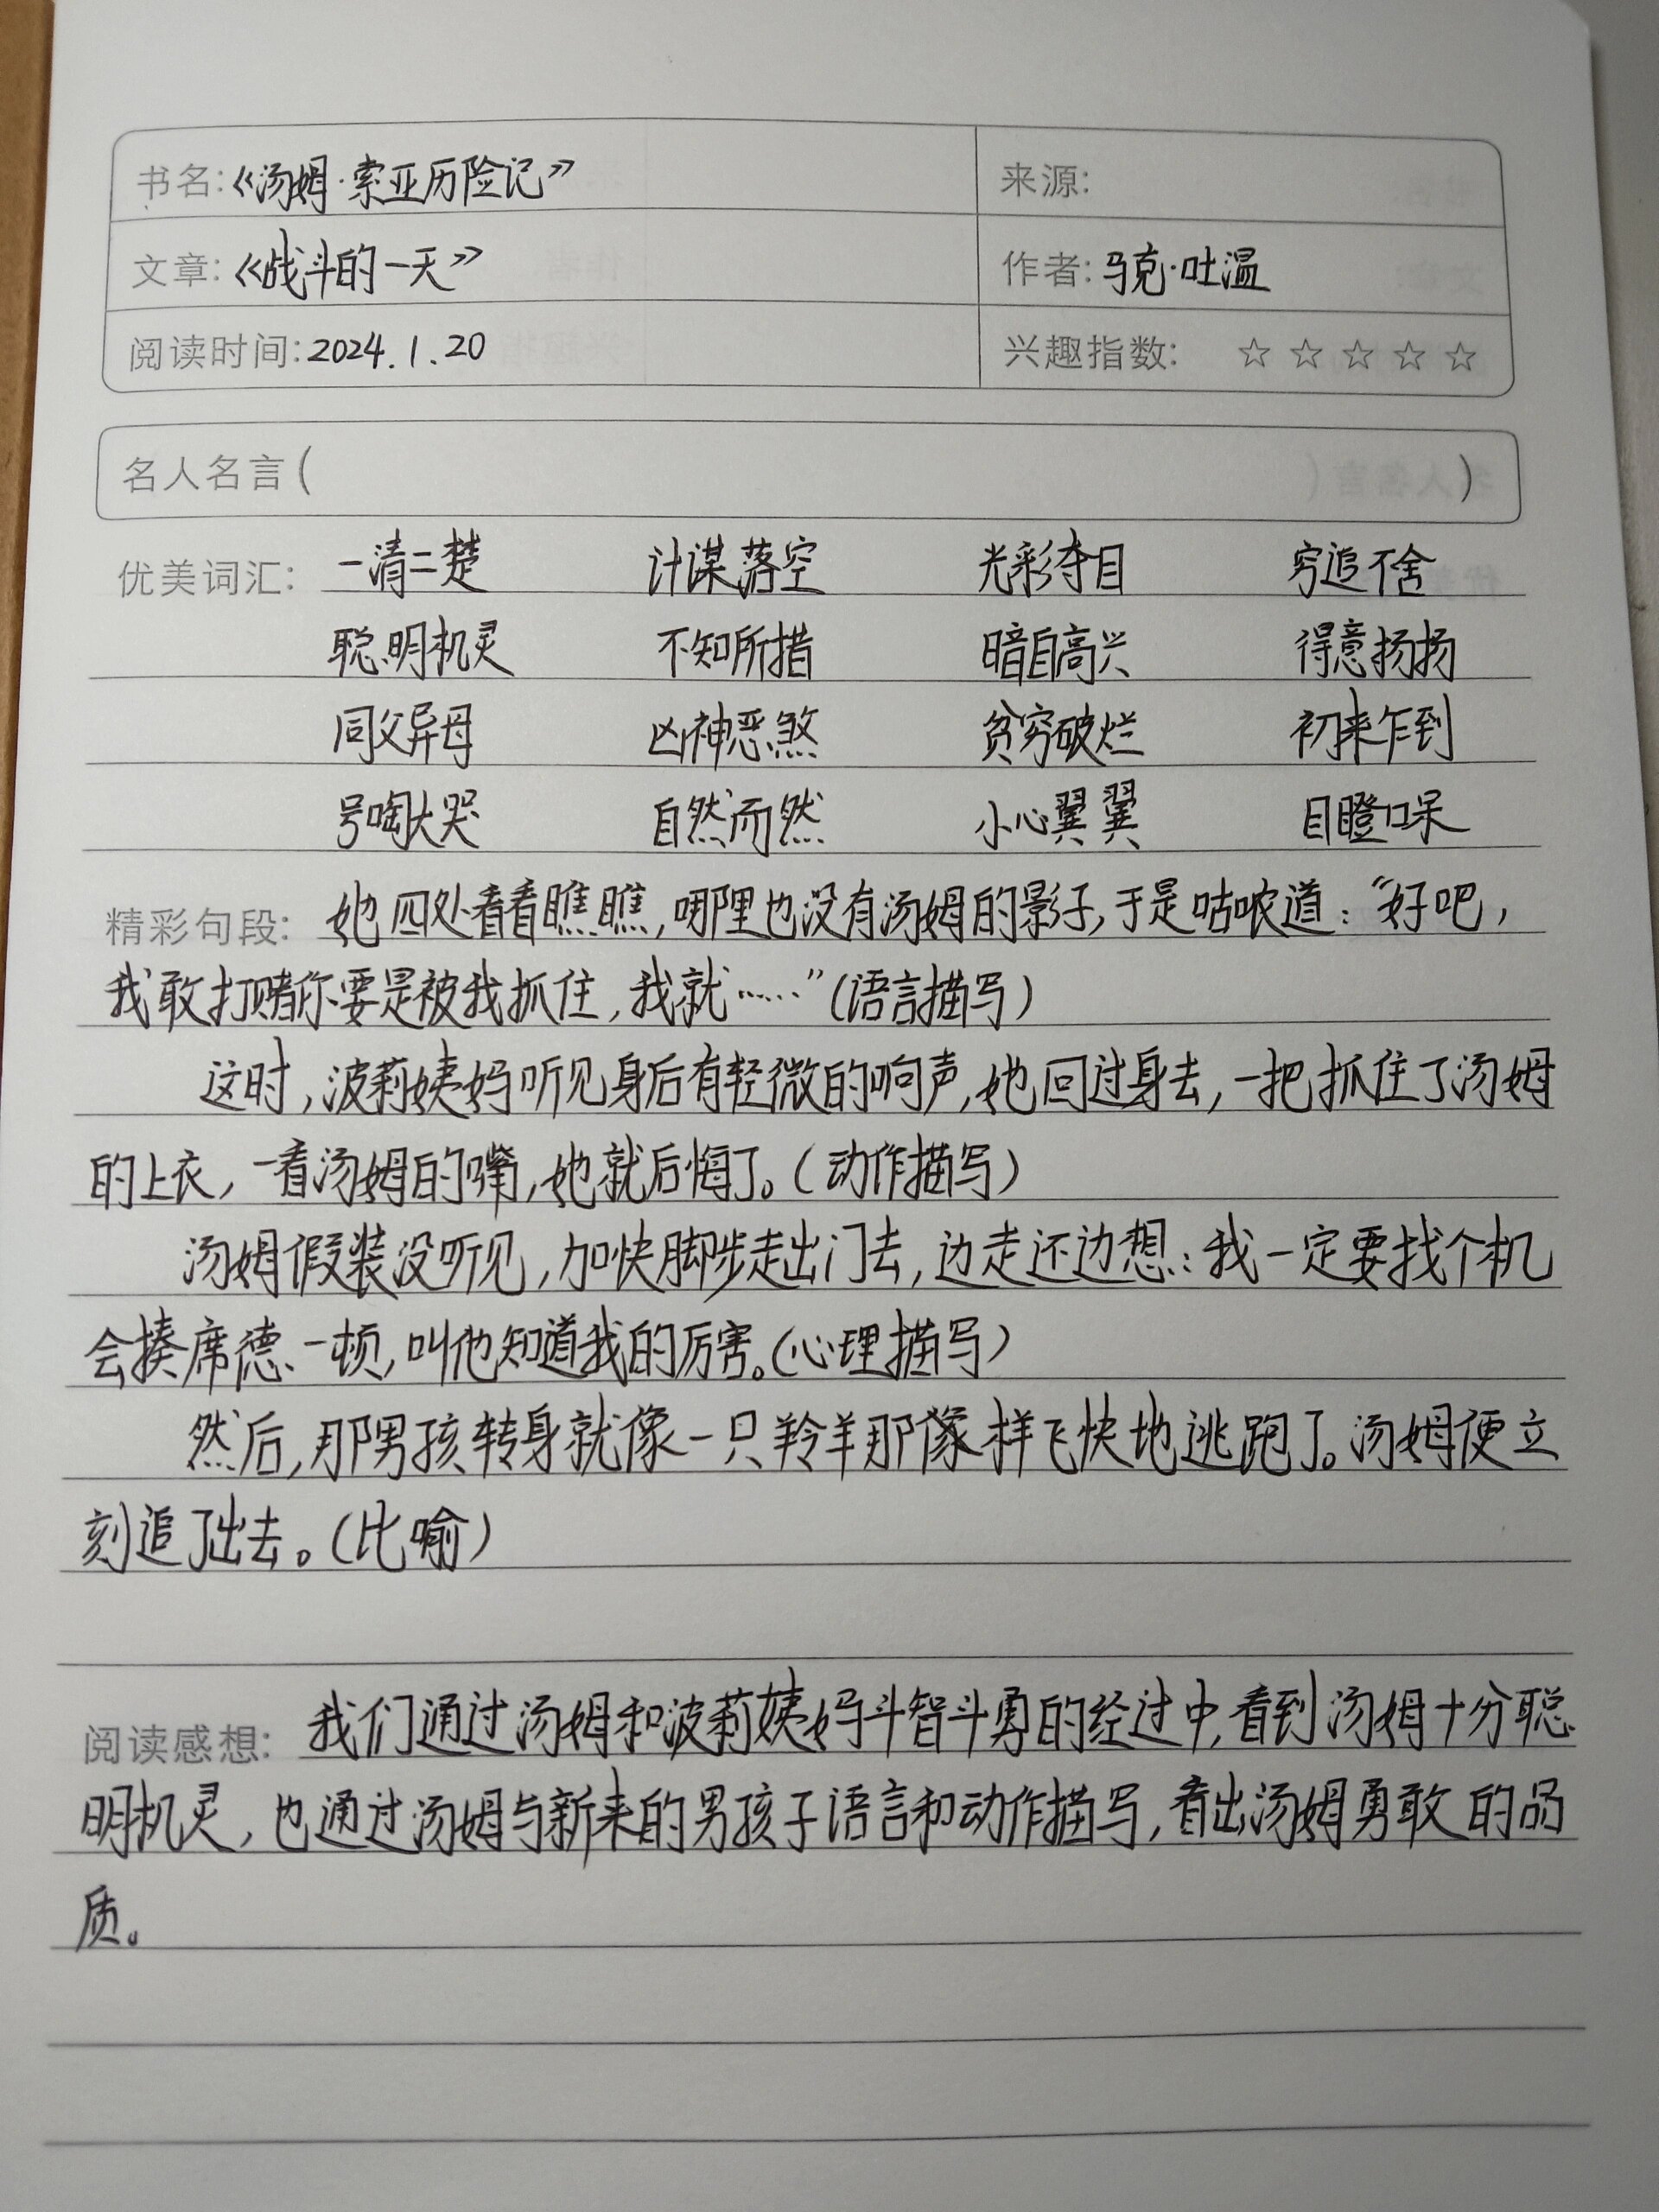 书名:《汤姆·索亚历险记》 来源:
文章:《战斗的一天》 作者:马克·吐温
阅读时间:2024.1.20 兴趣指数: ☆ ☆ ☆ ☆ ☆
名人名言( )
优美词汇: 一清二楚 计谋落空 光彩夺目 穷追不舍
聪明机灵 不知所措 暗自高兴 得意扬扬
同父异母 凶神恶煞 贫穷破烂 初来乍到
号啕大哭 自然而然 小心翼翼 目瞪口呆
精彩句段: 她四处看看瞧瞧,哪里也没有汤姆的影子,于是咕哝道:“好吧,
我敢打赌你要是被我抓住,我就……”(语言描写)
这时,波莉姨妈听见身后有轻微的响声,她回过身去,一把抓住了汤姆
的上衣,一看汤姆的嘴,她就后悔了。(动作描写)
汤姆假装没听见,加快脚步走出门去,边走还边想:我一定要找个机
会揍席德一顿,叫他知道我的厉害。(心理描写)
然后,那男孩转身就像一只羚羊那像样飞快地逃跑了。汤姆便立
刻追了出去。(比喻)
阅读感想: 我们通过汤姆和波莉姨妈斗智斗勇的经过中,看到汤姆十分聪
明机灵,也通过汤姆与新来的男孩子语言和动作描写,看出汤姆勇敢的品
质。